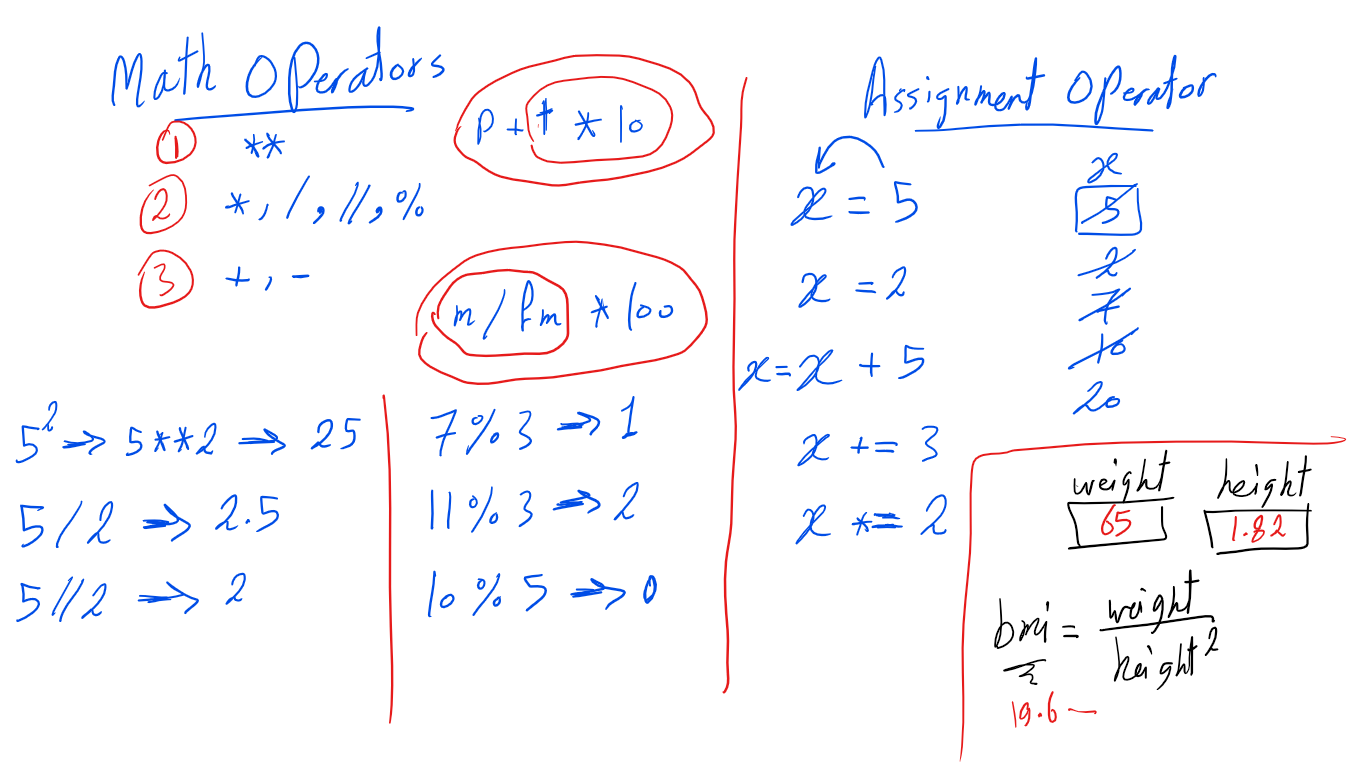 Math Operators
1 **
2 *, /, //, %
3 +, -
p + t * 10
m / fm * 100
5² => 5**2 => 25
5 / 2 => 2.5
5 // 2 => 2
7 % 3 => 1
11 % 3 => 2
10 % 5 => 0
Assignment Operator
x = 5
x = 2
x = x + 5
x += 3
x *= 2
x
5
2
7
10
20
weight height
65 1.82
bmi = weight / height²
19.6